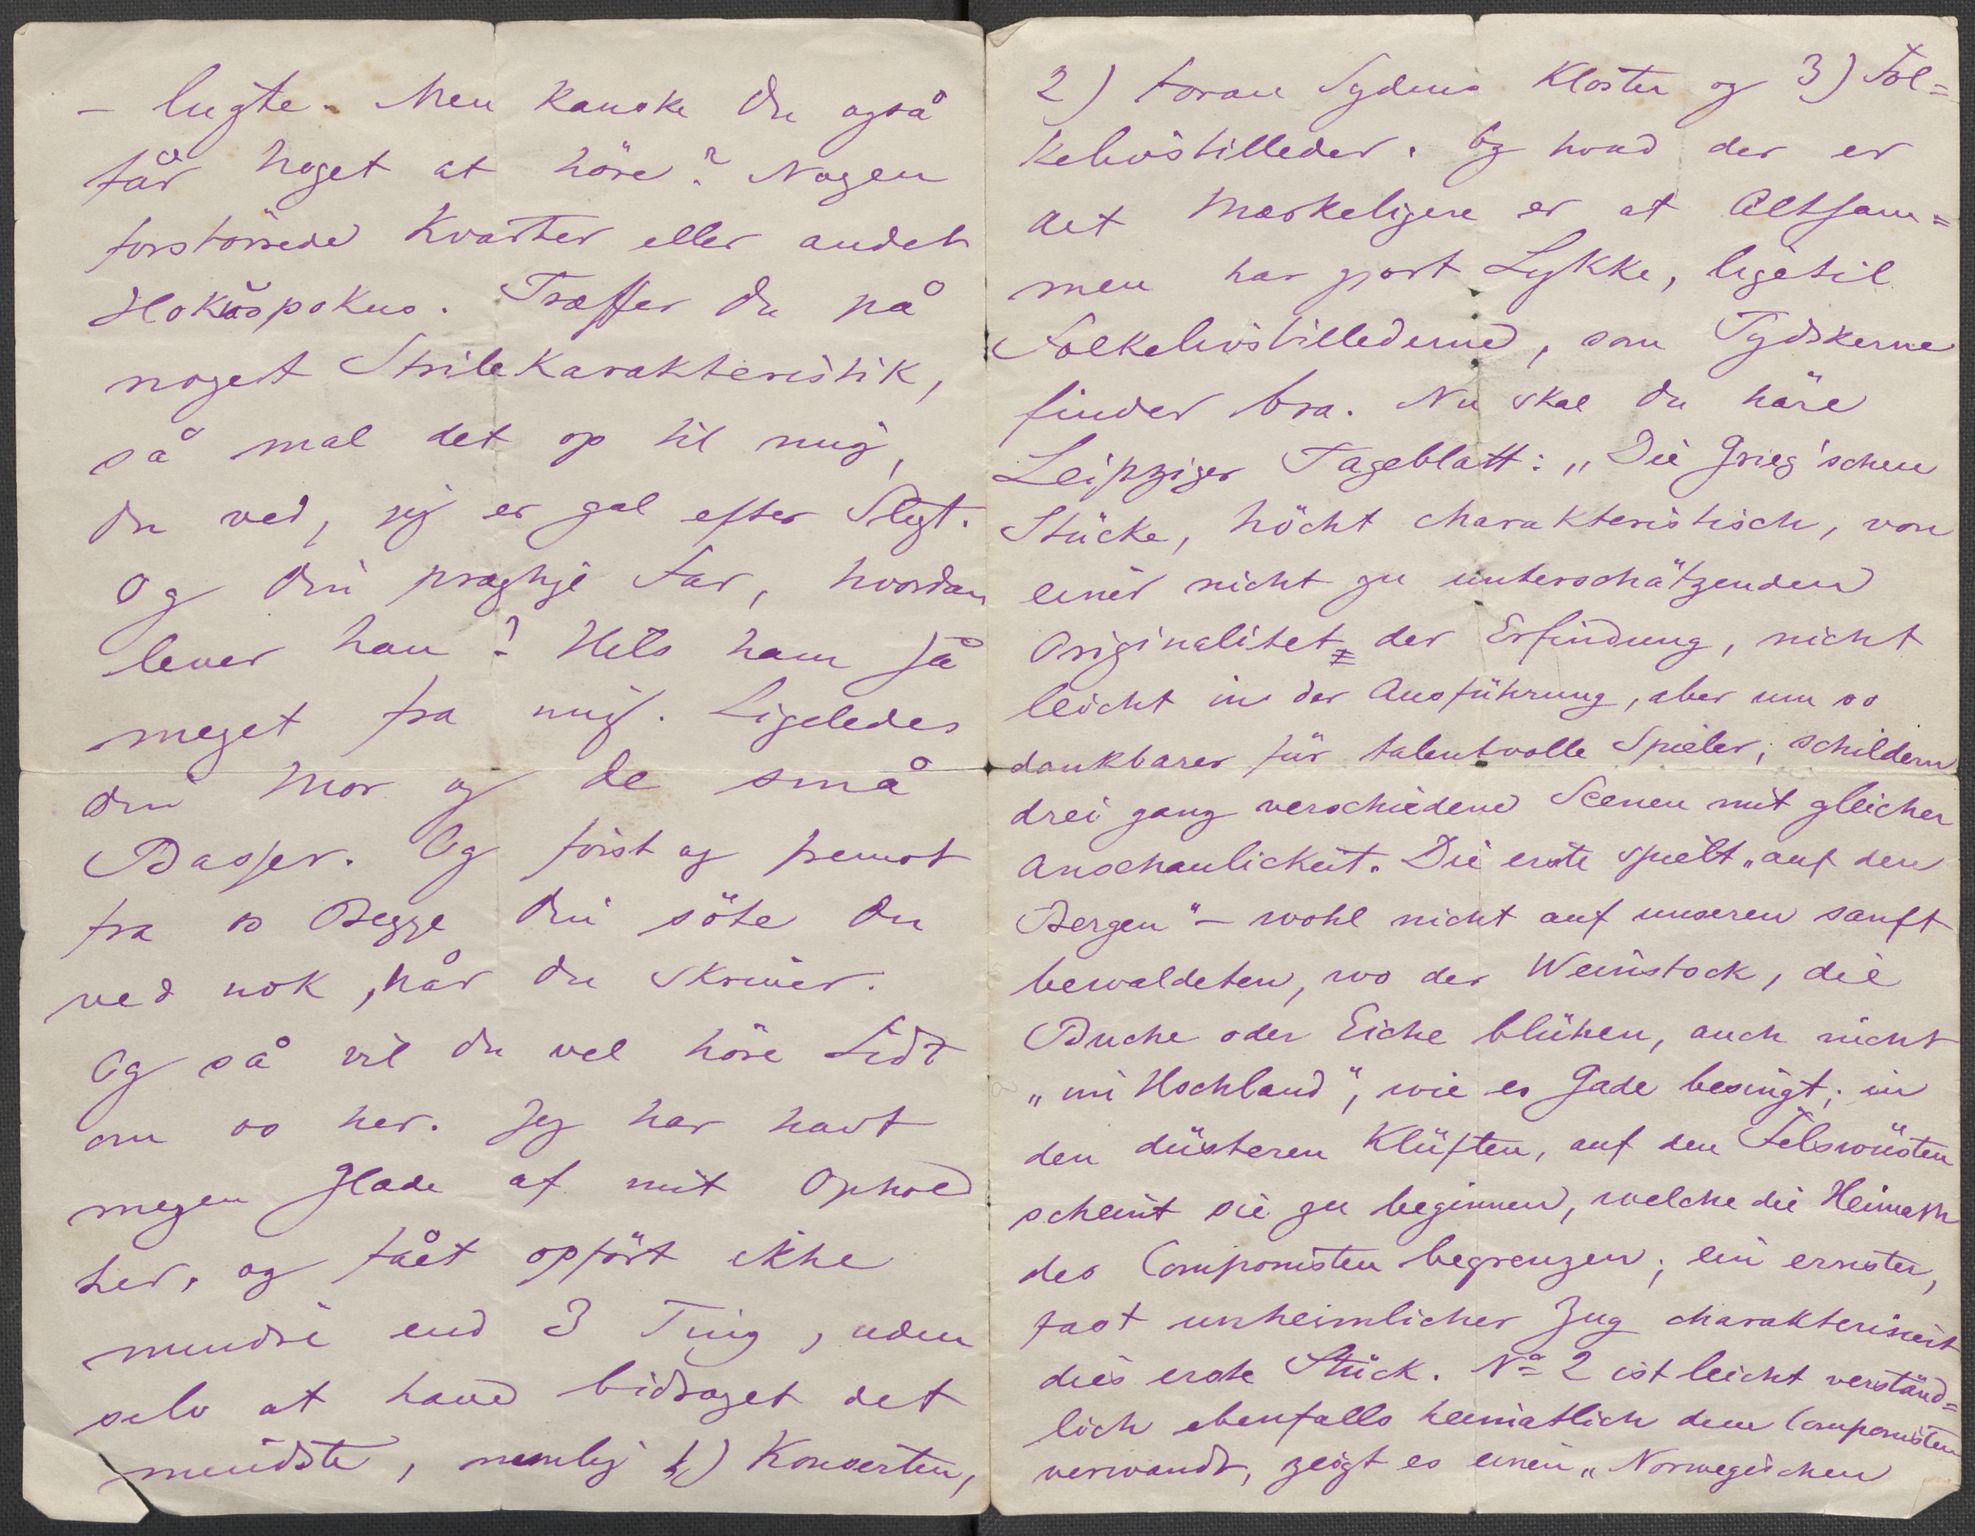 – lugte. Men kanske Du også
får noget at höre? Nogen
forstörrede Kvarter eller andet
Hokuspokus. Træffer Du på
noget Strilekarakteristik,
så mal det op til mig,
Du ved, jeg er gal efter Sligt.
Og Din prægtige Far, hvordan
lever han? Hils ham så
meget fra mig. Ligeledes
Din Mor og de små
Basser. Og först og fremst
fra os Begge Din söte Du
ved nok, når Du skriver.
Og så vil Du vel höre Lidt
om os her. Jeg har havt
megen Glæde af mit Ophold
her, og fået opfört ikke
mindre end 3 Ting, uden
selv at have bidraget det
mindste, nemlig 1) Konserten,
2) Foran Sydens Kloster og 3) Fol=
kelivsbilleder. Og hvad der er
det Mærkeligere er at Altsam=
men har gjort Lykke, ligetil
Folkelivsbillederne, som Tydskerne
finder bra. Nu skal Du höre
Leipziger Tageblatt: „Die Grieg'schen
Stücke, höcht charakteristisch, von
einer nicht zu unterschätzenden
Originalitet der Erfindung, nicht
leicht in der Ausführung, aber um so
dankbarer für talentvolle Spieler, schildern
drei ganz verschiedene Scenen mit gleicher
Anschaulickeit. Die erste spielt „auf den
Bergen" – wohl nicht auf unseren sanft
bewaldeten, wo der Weinstock, die
Buche oder Eiche blühen, auch nicht
„im Hochland", wie es Gade besingt; in
den düsteren Klüften, auf den Felswüsten
scheint sie zu beginnen, welche die Heimath
des Componisten begrenzen; ein ernster,
fast unheimlicher Zug charakterisirt
dies erste Stück. No 2 ist leicht verständ=
lich ebenfalls heimatlich dem Componisten
verwandt, zeigt es einen „Norwegischen